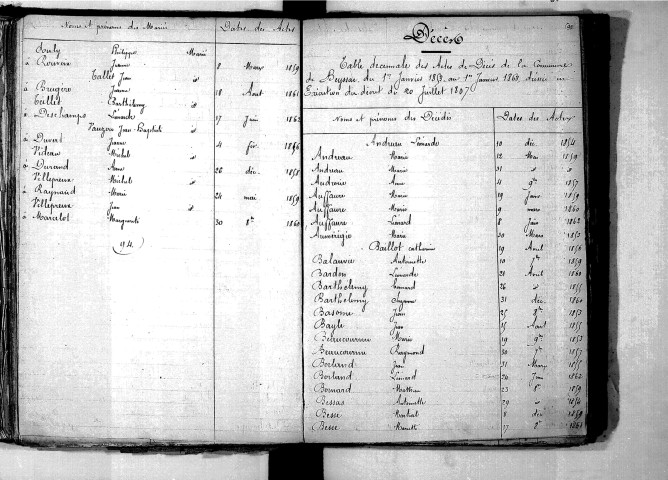 Noms et prénoms des Mariés Dates des Actes
Philippe Marié
à Rouveix Jeanne 8 Mars 1859
Tallet Jean id
à Brugère Jeanne 18 Aout 1861
Tallet Barthélemy id
à Deschamps Léonarde 17 Juin 1862
Vauzou Jean-Baptiste id
à Duval Jeanne 4 fév. 1856
Videau Michel id
à Durand Anne 26 déc. 1858
Villepreux Michel id
à Raynaud Marie 24 mai 1859
Villepreux Jean id
à Marcelot Marguerite 30 8bre 1860
(94.)
Décès
Table décennale des Actes de Décès de la Commune
de Beyssac du 1er Janvier 1853 au 1er Janvier 1863 dressée en
Exécution du décret du 20 Juillet 1807
Noms et prénoms des Décédés Dates des Actes
Andrieux Léonarde 10 déc. 1854
Andreau Marie 12 Mai 1859
Andreau Marie 31 id id
Andrieux Anne 4 9bre 1857
Auffaure Marie 19 Janv 1859
Auffaure Marie 9 mars 1860
Auffaure Léonard 8 Juin 1862
Marie 30 Mars 1853
Baillot catherine 19 Aout 1856
Antoinette 10 1859
Bardon Léonarde 20 Aout 1860
Barthélemy Léonard 26 id 1855
Barthélemy Suzanne 31 déc. 1860
Basome Jean 25 8bre 1853
Bayle Jean 15 Aout 1855
Beaucournu Marie 19 9bre 1853
Beaucournu Raymond 30 1857
Berland Jean 31 Mars 1855
Berland Léonard 24 Juin 1862
Bernard Mathieu 23 1859
Bessas Antoinette 29 id 1856
Besse Martial 8 déc 1859
Besse 17 1861